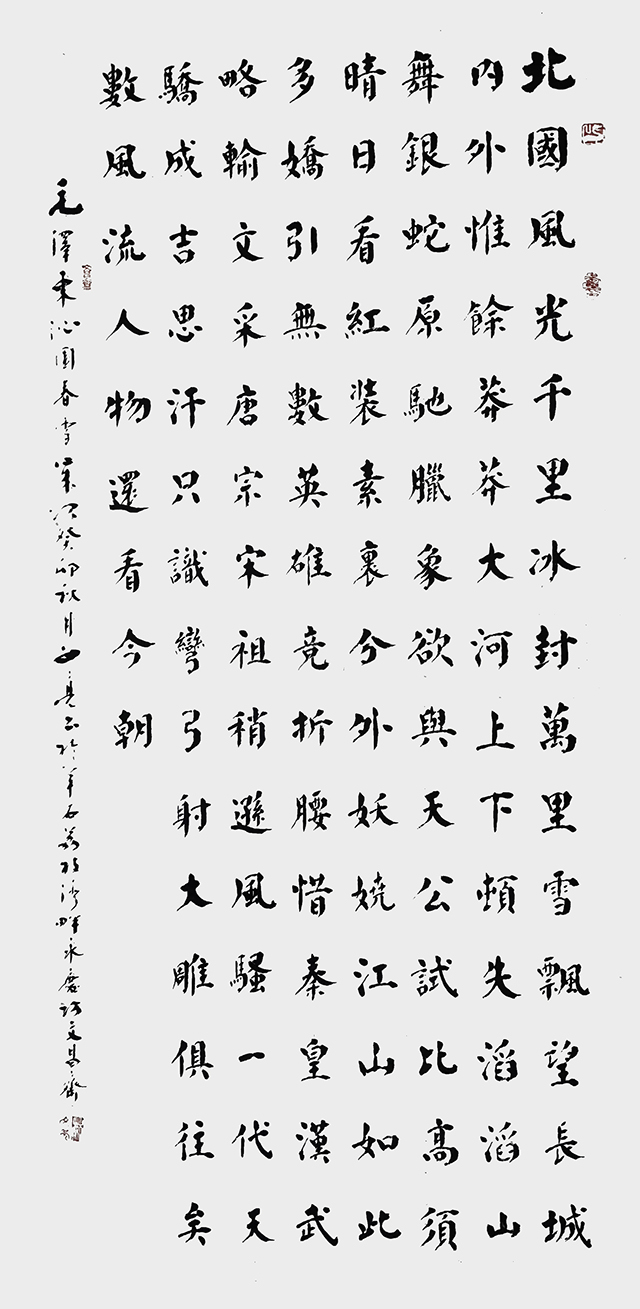 北國風光千里冰封萬里雪飄望長城
内外惟餘莽莽大河上下頓失滔滔山
舞銀蛇原馳臘象欲與天公試比高須
晴日看紅裝素裹分外妖嬈江山如此
多嬌引無數英雄竞折腰惜秦皇漢武
略輸文采唐宗宋祖稍遜風騷一代天
驕成吉思汗只識彎弓射大雕俱往矣
數風流人物還看今朝
毛澤東沁園春雪 癸卯秋月